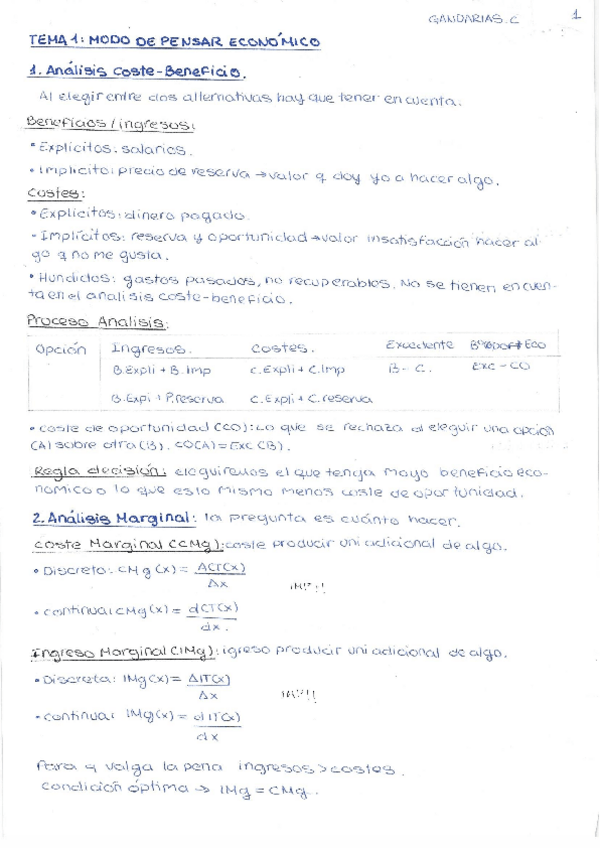 GANDARIAS.C 1
TEMA 1: MODO DE PENSAR ECONÓMICO
1. Análisis Coste-Beneficio.
Al elegir entre dos alternativas hay que tener en cuenta.
Beneficios/ingresos:
• Explícitos: salarios.
• Implícito: precio de reserva → valor q doy yo a hacer algo.
Costes:
• Explícitos: dinero pagado.
- Implícitos: reserva y oportunidad → valor insatisfacción hacer al
go q no me gusta.
• Hundidos: gastos pasados, no recuperables. No se tienen en cuen-
ta en el analisis coste-beneficio.
Proceso Analisis:
Opción Ingresos. Costes. Excedente Eco
B.Expli + B.Imp C.Expli + C.Imp B - C. Exc - CO
B.Expi + P.reserva C.Expli + C.reserva
• Coste de oportunidad (CO): Lo que se rechaza al eleguir una opción
(A) sobre otra (B). CO(A) = EXC (B).
Regla decisión: eleguiremos el que tenga mayo beneficio eco-
nómico o lo que es lo mismo menos coste de oportunidad.
2. Análisis Marginal: la pregunta es cuánto hacer.
Coste Marginal (CMg): coste producir uni adicional de algo.
• Discreta: CMg (x) = ΔCT(x)
Δx IMP!!
• Continua: CMg (x) = dCT(x)
dx.
Ingreso Marginal (IMg): igreso producir uni adicional de algo.
• Discreta: IMg(x) = ΔIT(x)
Δx IMP!!
• Continua: IMg(x) = dIT(x)
dx
Para q valga la pena ingresos > costes.
Condición óptima → IMg = CMg.